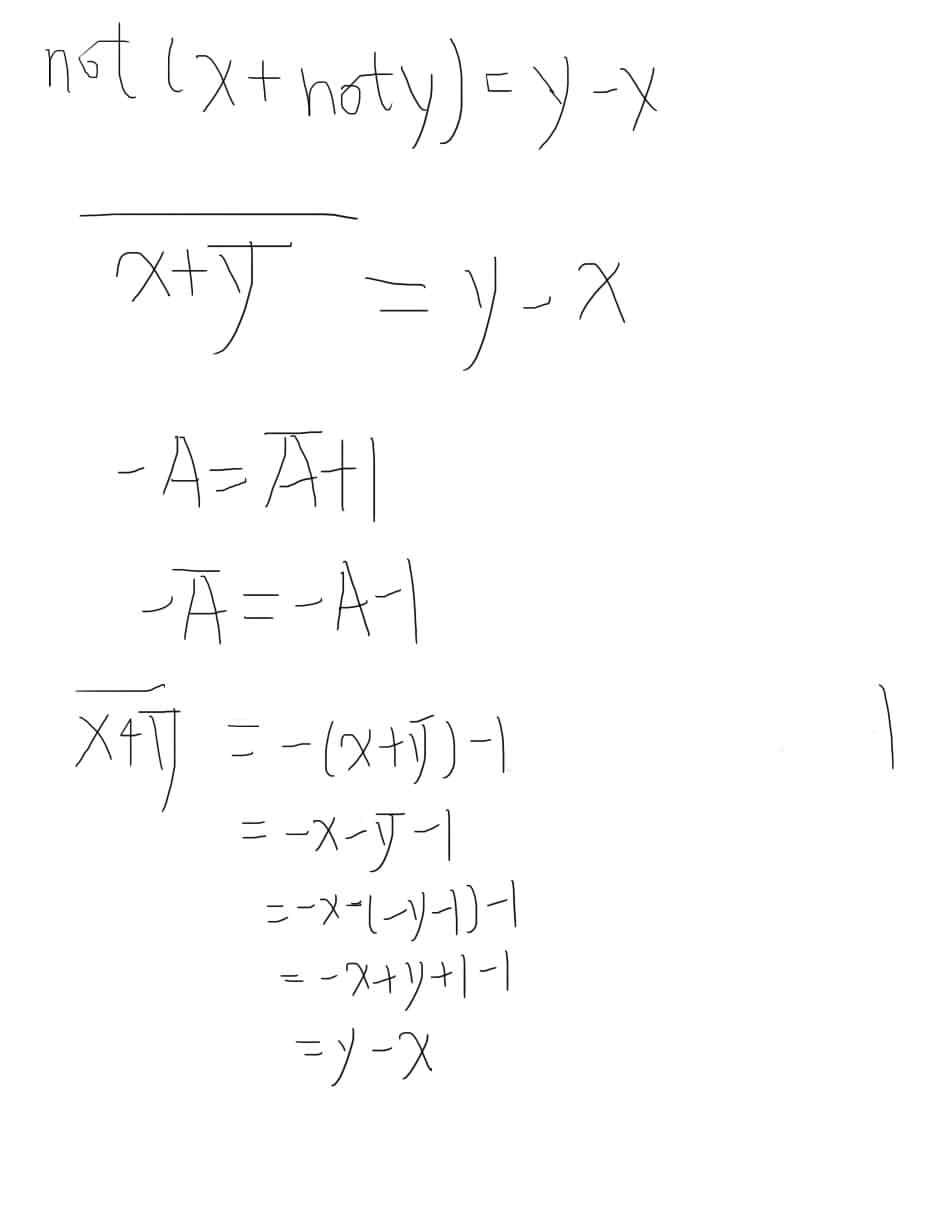 not (x + not y) = y - x
$\overline{x + \overline{y}}$ = y - x
-A = $\overline{A}$ + 1
-$\overline{A}$ = -A - 1
$\overline{x + \overline{y}}$ = -(x + $\overline{y}$) - 1
1
= -x - $\overline{y}$ - 1
= -x - (-y - 1) - 1
= -x + y + 1 - 1
= y - x